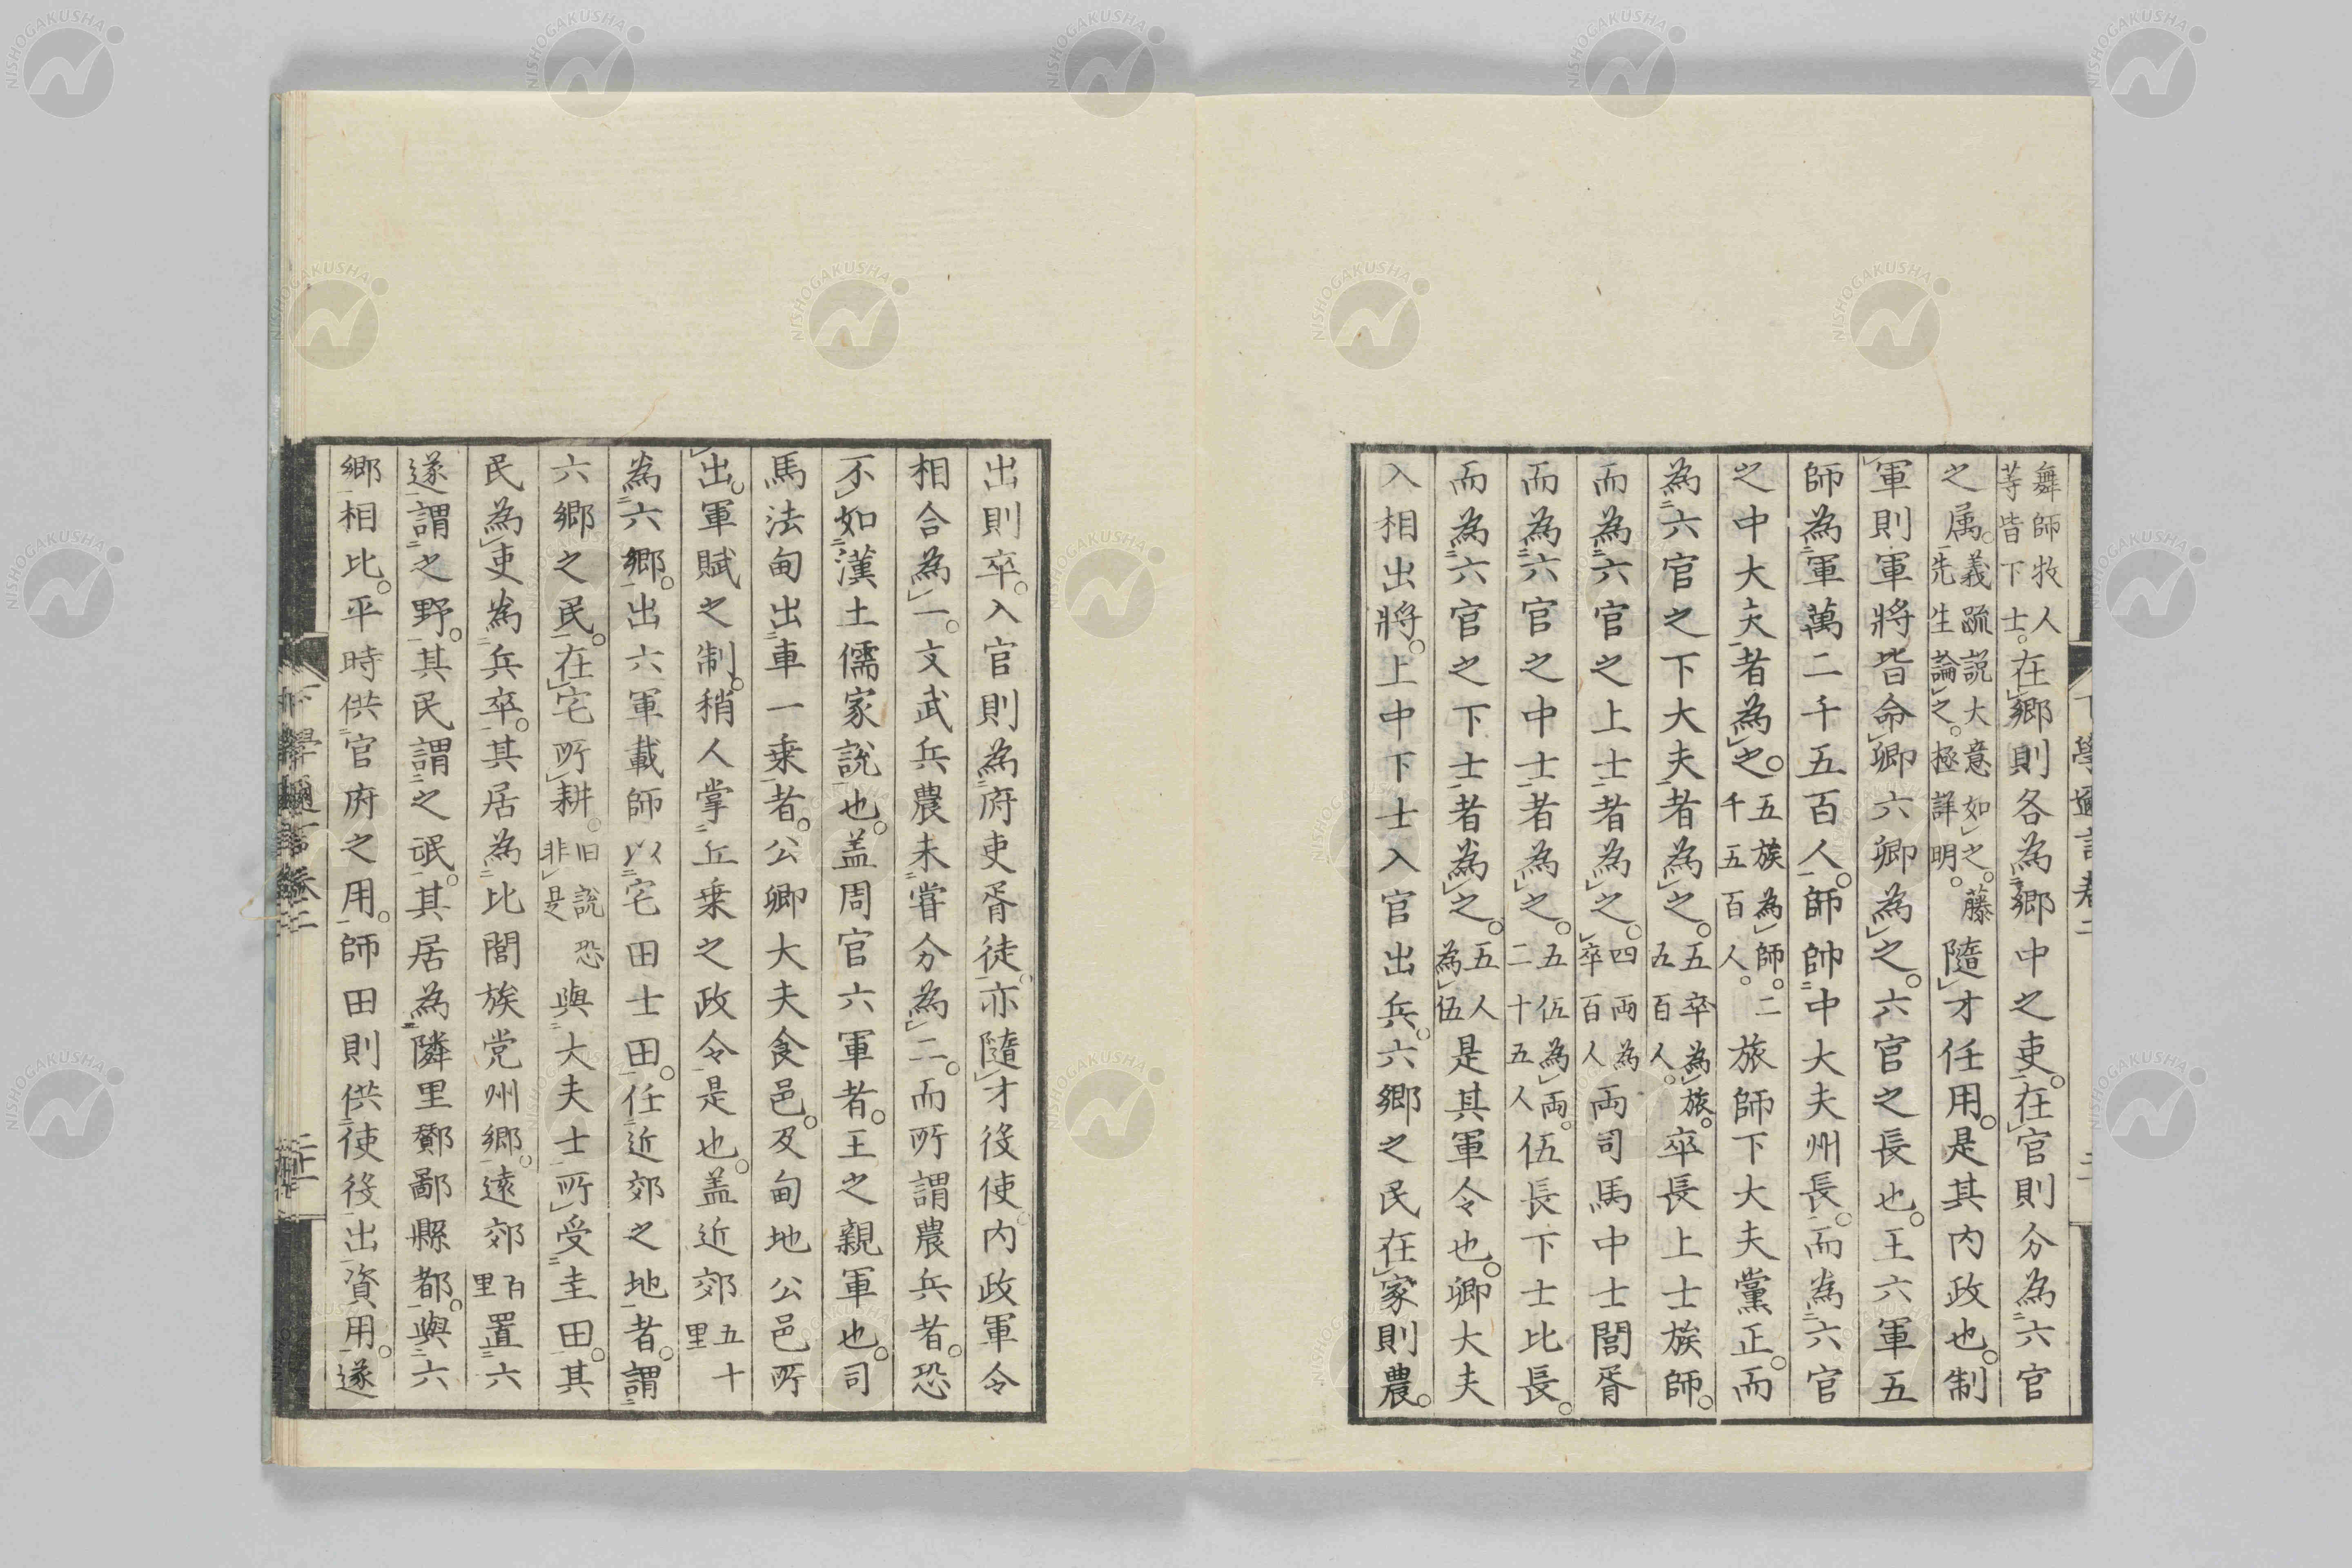 舞師牧人等皆下士。在鄉則各為鄉中之吏。在官則分為六官
之属。義疏説大意如之。藤先生論之。極詳明。隨才任用。是其内政也。制
軍則軍將皆命卿六卿為之。六官之長也。王六軍五
師為軍萬二千五百人。師帥中大夫州長。而為六官
之中大夫者為之。五族為師。二千五百人。旅師下大夫黨正。而
為六官之下大夫者為之。五卒為旅。五百人。卒長上士族師。
而為六官之上士者為之。四両為卒百人両司馬中士閭胥
而為六官之中士者為之。五伍為両。二十五人伍長下士比長。
而為六官之下士者為之。五人為伍是其軍令也。卿大夫
入相出將。上中下士入官出兵。六鄉之民在家則農。
下學邇言卷二
出則卒。入官則為府吏胥徒。亦隨才役使。内政軍令
相合為一。文武兵農未甞分為二。而所謂農兵者。恐
不如漢土儒家説也。盖周官六軍者。王之親軍也。司
馬法甸出車一乗者。公卿大夫食邑。及甸地公邑所
出。軍賦之制。稍人掌丘乗之政令是也。盖近郊五十里
為六鄉。出六軍載師以宅田士田。任近郊之地者。謂
六鄉之民。在宅所耕。旧説恐非是與大夫士所受圭田。其
民為吏為兵卒。其居為比閭族党州鄉。遠郊百里置六
遂謂之野。其民謂之氓。其居為隣里酇鄙縣都。與六
鄉相比。平時供官府之用。師田則供使役出資用。遂
下學邇言卷二